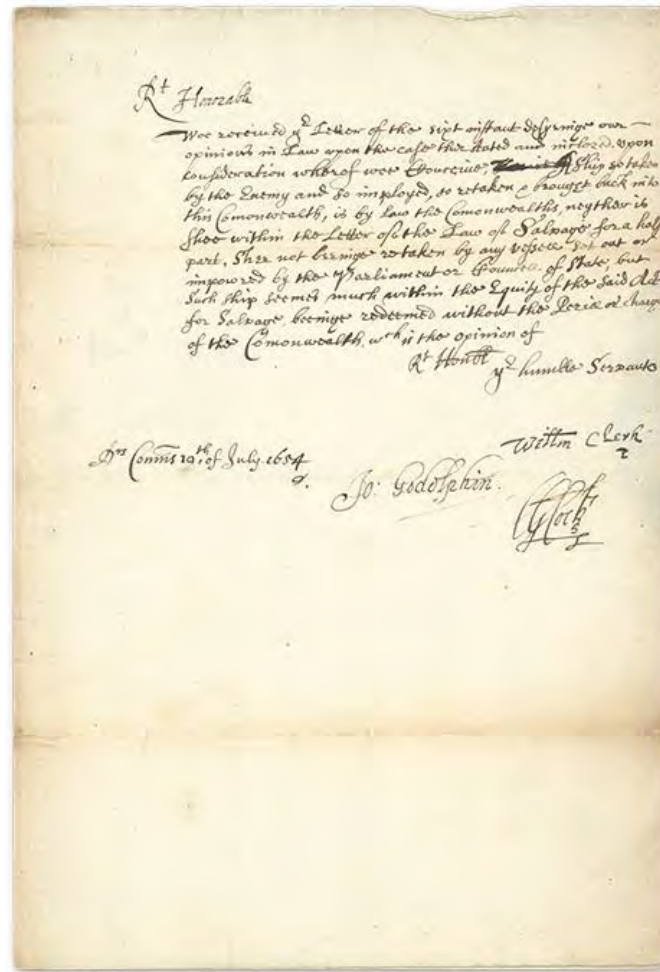 Rt Honorable
Wee received yr Letter of the sixt instant desyringe our
opinions in Law upon the case ther stated and inclosed, upon
consideration wherof wee Conceive, A Ship so taken
by the Enemy and so imployed, so retaken & brought back into
this Comonwealth, is by Law the Comonwealths, neyther is
Shee within the Letter of the Law of Salvage for a half
part, Shee not beeinge retaken by any vessell set out or
impowred by the Parliament or Councell of State, but
Such ship seemes much within the Equity of the said Act
for Salvage, beeinge redeemed without the Perill or charge
of the Comonwealth, wch is the opinion of
Rt Honble
yr humble Servants
Drs Comons 19th of July. 1654
Willm Clerk
Jo: Godolphin.